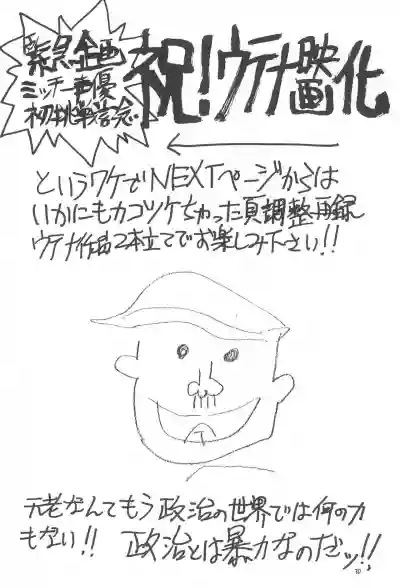 緊急企画
ミッチー声優
初挑戦記念
祝！ウテナ映画化
というワケでNEXTページからは
いかにもカコツケちゃった頁調整再録
ウテナ作品2本立てでお楽しみ下さい!!
元老なんてもう政治の世界では何の力
もない!! 政治とは暴力なのだッ!!